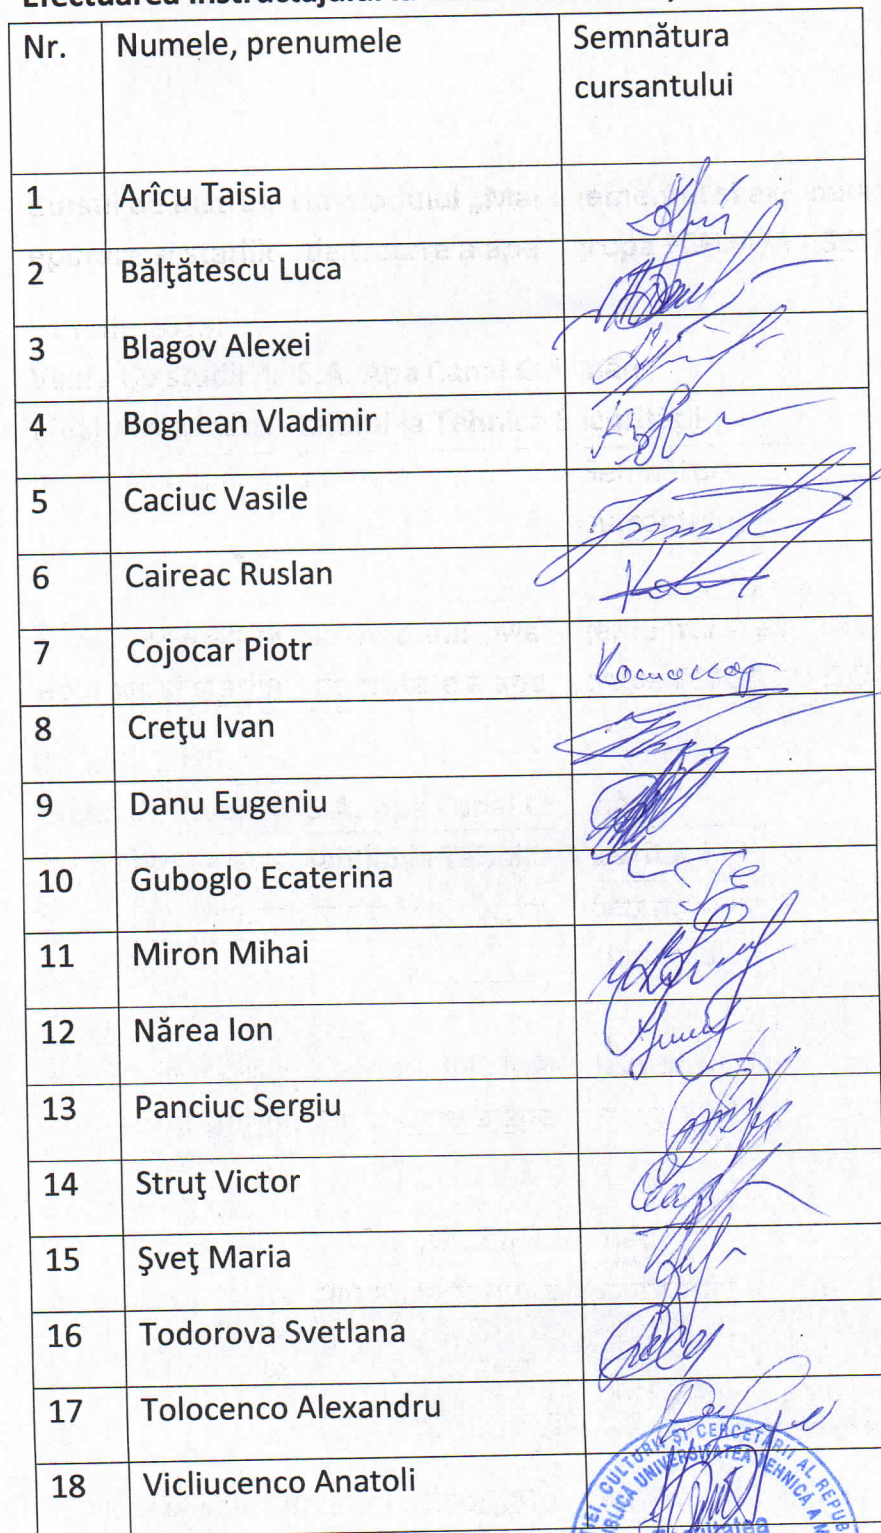 Efectuarea
Nr. Numele, prenumele Semnătura
cursantului
1 Arîcu Taisia
2 Bălţătescu Luca
3 Blagov Alexei
4 Boghean Vladimir
5 Caciuc Vasile
6 Caireac Ruslan
7 Cojocar Piotr
8 Creţu Ivan
9 Danu Eugeniu
10 Guboglo Ecaterina
11 Miron Mihai
12 Nărea Ion
13 Panciuc Sergiu
14 Struţ Victor
15 Şveţ Maria
16 Todorova Svetlana
17 Tolocenco Alexandru
18 Vicliucenco Anatoli
CULTURII ŞI CERCETĂRII AL
UNIVERSITATEA TEHNICĂ A